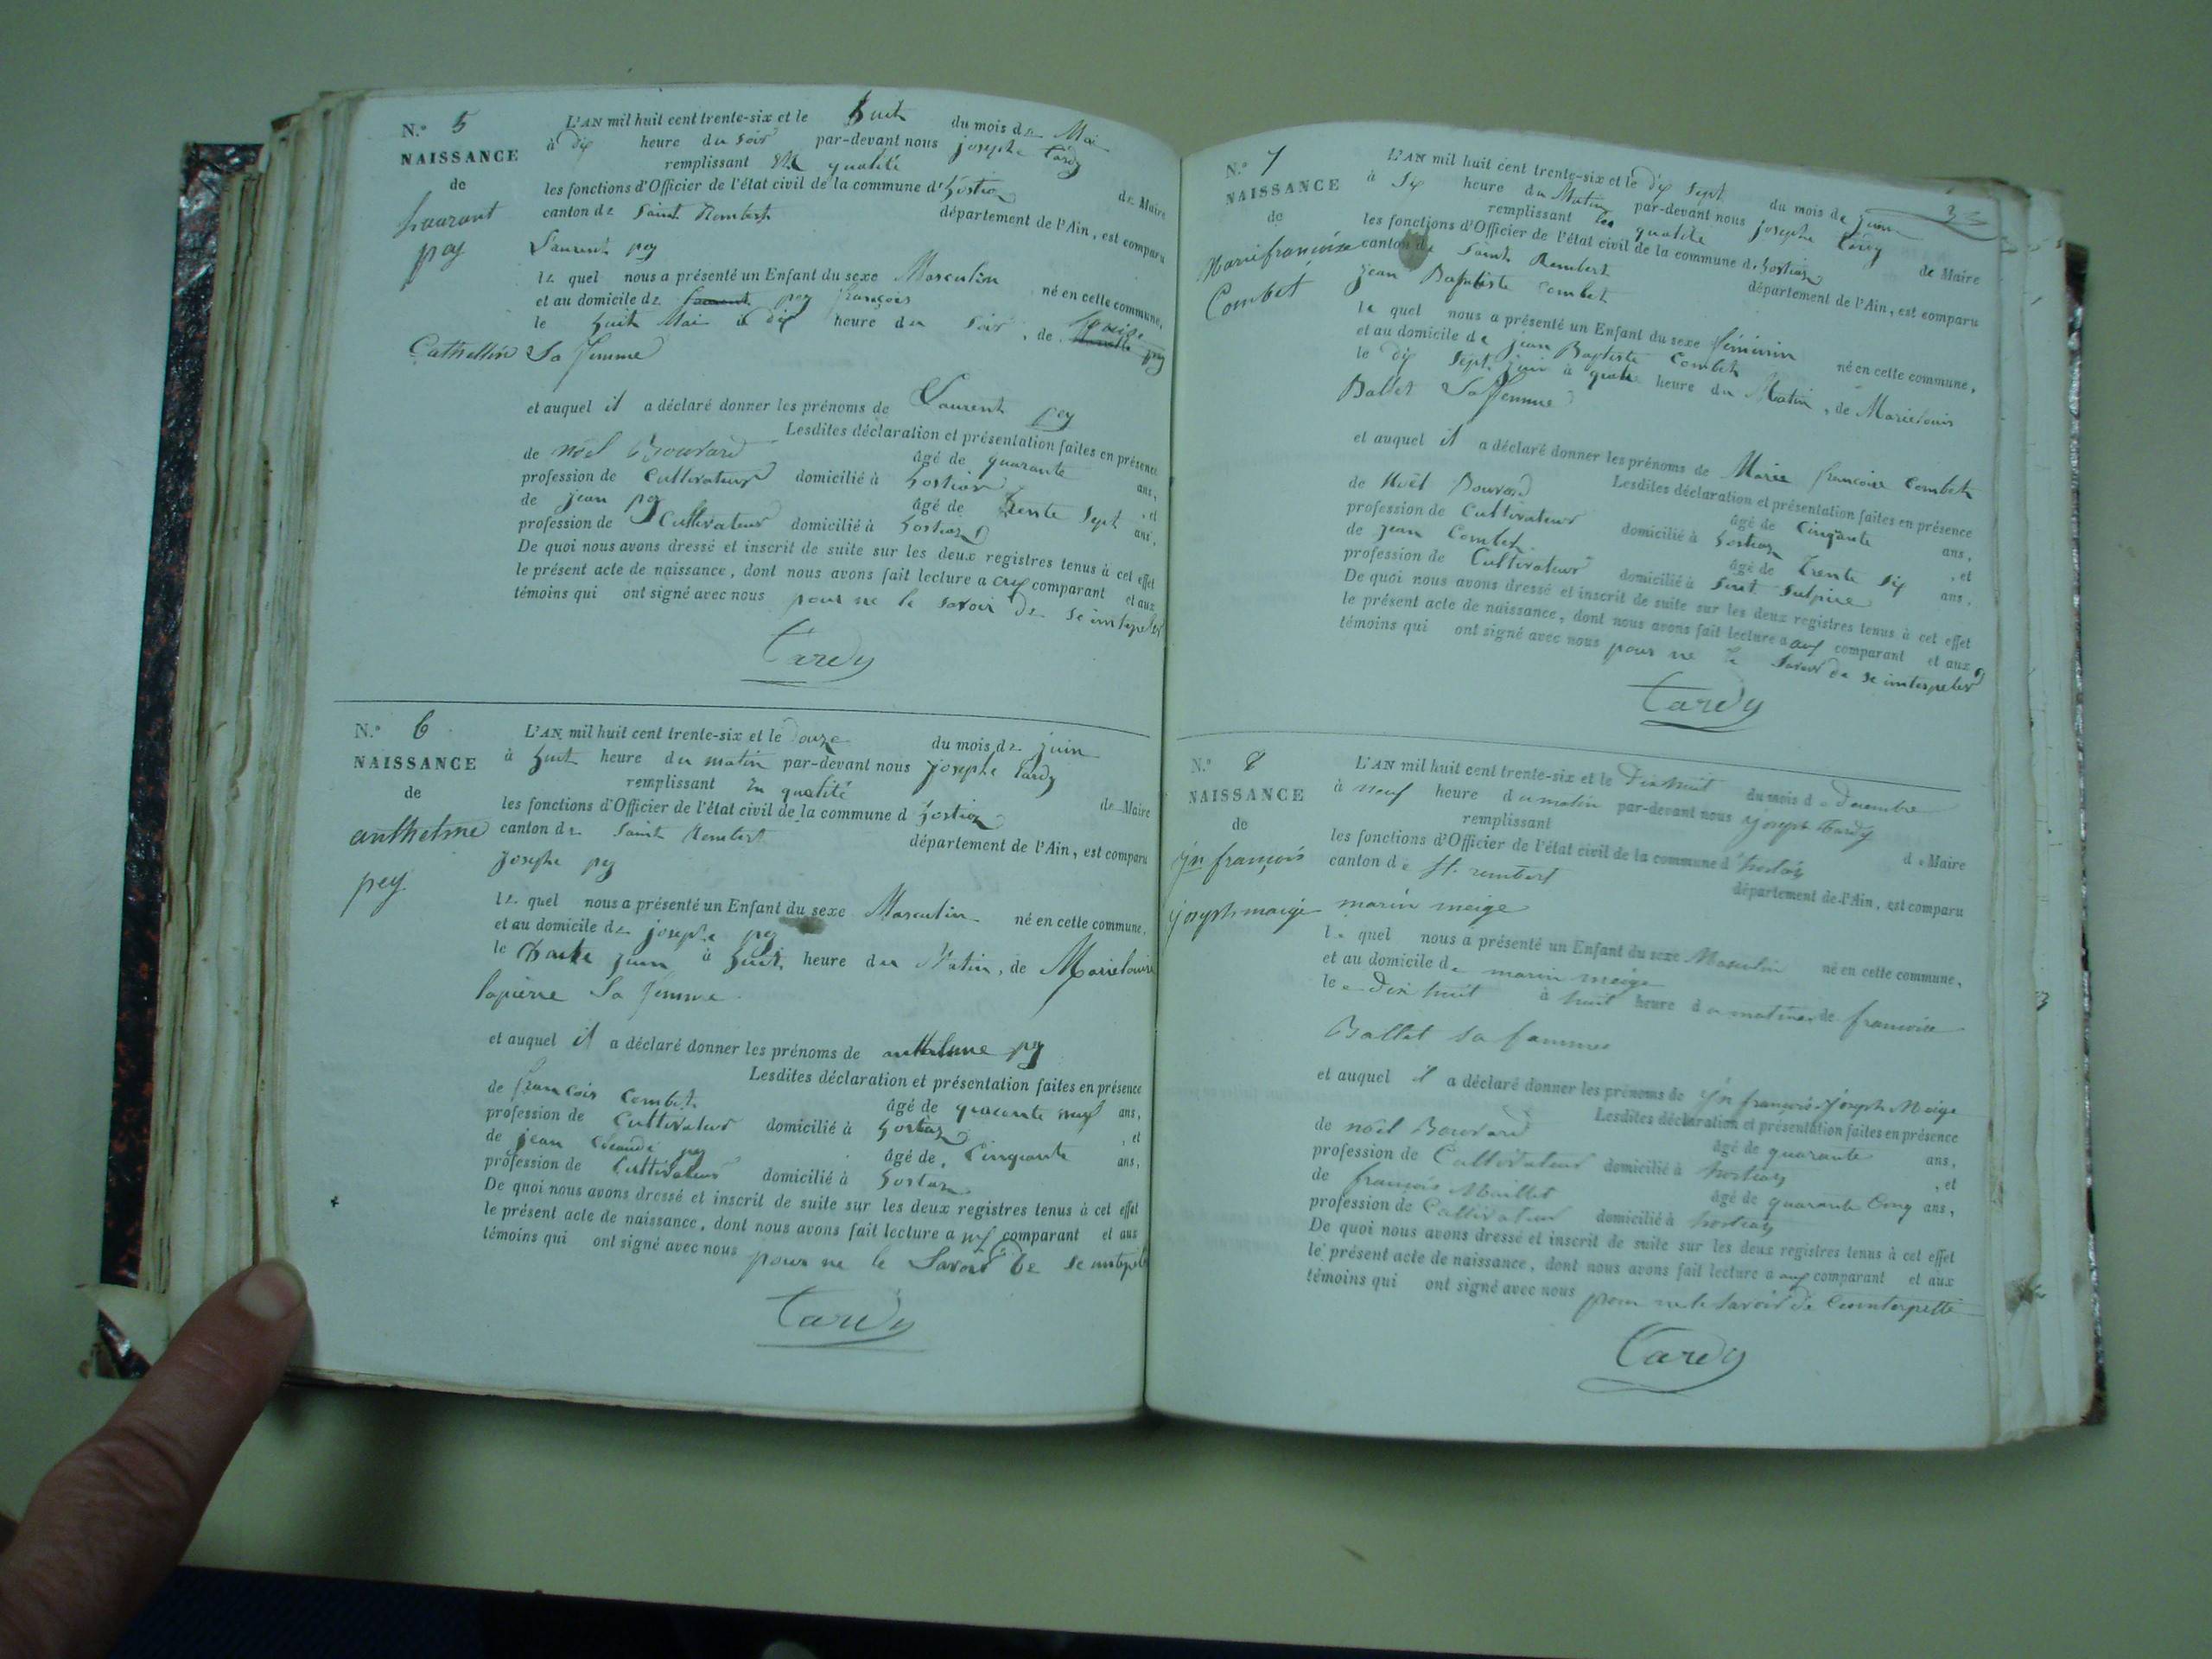 N.° 5
NAISSANCE
de
Laurant
pey
L'AN mil huit cent trente-six et le huit du mois de Mai
à dix heure du soir par-devant nous josephe tardy
remplissant qualité de Maire
les fonctions d'Officier de l'état civil de la commune d'hostiaz
canton de Saint Rembert département de l'Ain, est comparu
Laurent pey
le quel nous a présenté un Enfant du sexe Masculin né en cette commune,
et au domicile de pey françois
le huit Mai à dix heure du soir, de Louise pey
Cathellin Sa femme
et auquel il a déclaré donner les prénoms de Laurent pey
Lesdites déclaration et présentation faites en présence
de noël Bouvard âgé de quarante ans,
profession de Cultivateur domicilié à hostiaz, et
de jean pey âgé de trente sept ans,
profession de Cultivateur domicilié à hostiaz
De quoi nous avons dressé et inscrit de suite sur les deux registres tenus à cet effet
le présent acte de naissance, dont nous avons fait lecture a comparant et aux
témoins qui ont signé avec nous pour ne le savoir de se
Tardy
N.° 6
NAISSANCE
de
anthelme
pey
L'AN mil huit cent trente-six et le douze du mois de juin
à huit heure du matin par-devant nous josephe tardy
remplissant en qualité de Maire
les fonctions d'Officier de l'état civil de la commune d hostiaz
canton de Saint Rembert département de l'Ain, est comparu
josephe pey
le quel nous a présenté un Enfant du sexe Masculin né en cette commune,
et au domicile de josephe pey
le juin à huit heure du Matin, de Marielouise
lapierre Sa femme
et auquel il a déclaré donner les prénoms de anthelme pey
Lesdites déclaration et présentation faites en présence
de françois Combet âgé de quarante neuf ans,
profession de Cultivateur domicilié à hostiaz, et
de jean Claude pey âgé de Cinquante ans,
profession de Cultivateur domicilié à hostiaz
De quoi nous avons dressé et inscrit de suite sur les deux registres tenus à cet effet
le présent acte de naissance, dont nous avons fait lecture a comparant et aux
témoins qui ont signé avec nous pour ne le Savoir de se
Tardy
N.° 7
NAISSANCE
de
Marie françoise
Combet
L'AN mil huit cent trente-six et le dix sept du mois de juin
à Six heure du Matin par-devant nous josephe tardy
remplissant qualité de Maire
les fonctions d'Officier de l'état civil de la commune d hostiaz
canton de Saint Rembert département de l'Ain, est comparu
jean Baptiste Combet
le quel nous a présenté un Enfant du sexe féminin né en cette commune,
et au domicile de jean Baptiste Combet
le dix Sept juin à quatre heure du Matin, de Marielouise
Ballet Sa femme
et auquel il a déclaré donner les prénoms de Marie francoise Combet
Lesdites déclaration et présentation faites en présence
de Noël Bouvard âgé de Cinqante ans,
profession de Cultivateur domicilié à hostiaz, et
de jean Combet âgé de Trente Six ans,
profession de Cultivateur domicilié à Sulpice
De quoi nous avons dressé et inscrit de suite sur les deux registres tenus à cet effet
le présent acte de naissance, dont nous avons fait lecture a aux comparant et aux
témoins qui ont signé avec nous pour ne le Savoir de se interpeler
Tardy
N.° 8
NAISSANCE
de
jn françois
joseph maige
L'AN mil huit cent trente-six et le dix huit du mois de Decembre
à neuf heure du matin par-devant nous joseph Tardy
remplissant de Maire
les fonctions d'Officier de l'état civil de la commune d hostiaz
canton de st. rembert département de l'Ain, est comparu
marin meige
le quel nous a présenté un Enfant du sexe Masculin né en cette commune,
et au domicile de marin meige
le dix huit à huit heure du matin de francoise
Ballet sa famme
et auquel il a déclaré donner les prénoms de jn françois joseph Meige
Lesdites déclaration et présentation faites en présence
de noël Bouvard âgé de quarante ans,
profession de Cultivateur domicilié à hostiaz, et
de françois Maillet âgé de quarante Cinq ans,
profession de Cultivateur domicilié à hostiaz
De quoi nous avons dressé et inscrit de suite sur les deux registres tenus à cet effet
le présent acte de naissance, dont nous avons fait lecture a aux comparant et aux
témoins qui ont signé avec nous pour ne le savoir de
Tardy